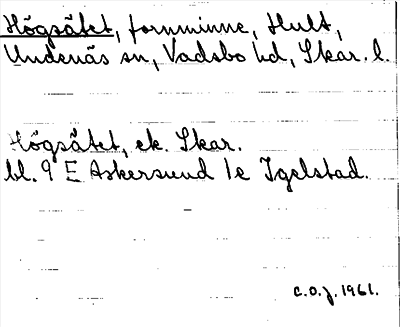 Högsätet, fornminne, Hult,
Undenäs sn, Vadsbo hd, Skar. l.
Högsätet, ek. Skar.
bl. 9 E Askersund 1e Igelstad.
C.O.J. 1961.